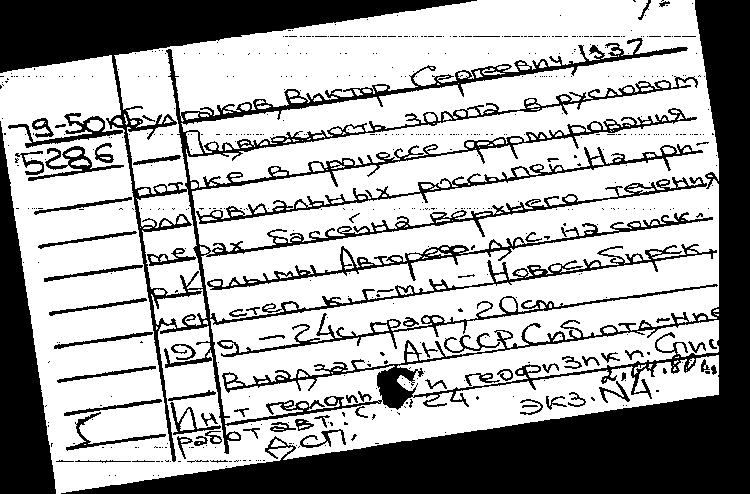 79-50к Булгаков, Виктор Сергеевич, 1937
5286 Подвижность золота в русловом
потоке в процессе формирования
аллювиальных россыпей: На при-
мерах бассейна верхнего течения
р. Колымы. Автореф. дис. на соиск.
учен. степ. к. г.-м. н. - Новосибирск,
1979. - 24с, граф.; 20см.
В надзаг.: АНСССР. Сиб. отд-ние
Ин-т геологии и геофизики. Спис
работ авт.: с. 24.
ДСП. экз. N4.